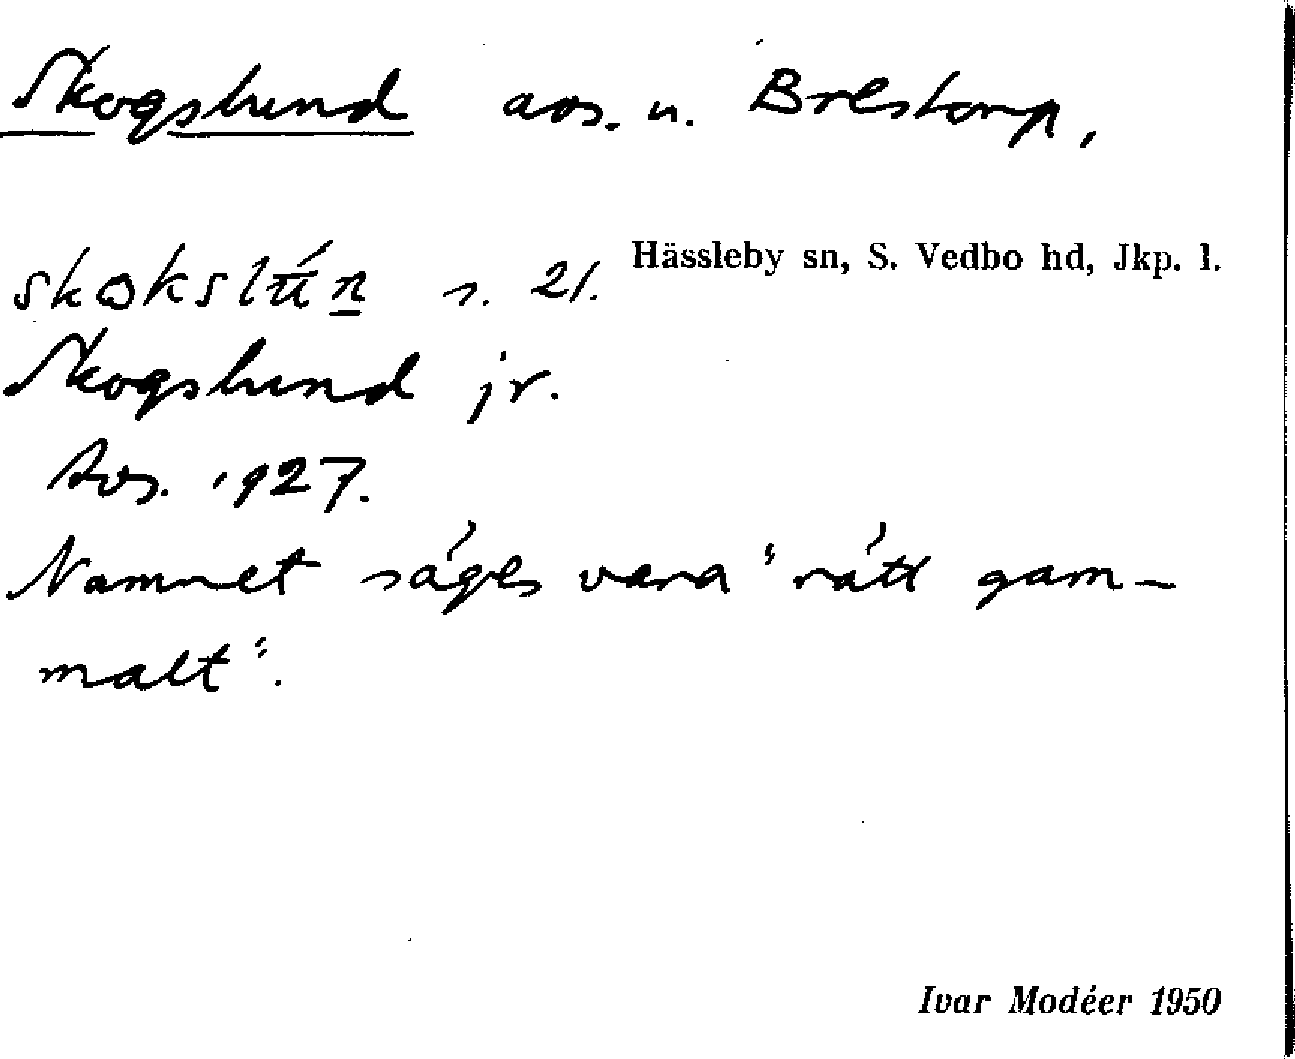 Skogslund avs. u. Brestorp,
Hässleby sn, S. Vedbo hd, Jkp. l.
s. 21.
Skogslund jr.
Avs. 1927.
Namnet säges vara "rätt gam-
malt".
Ivar Modéer 1950